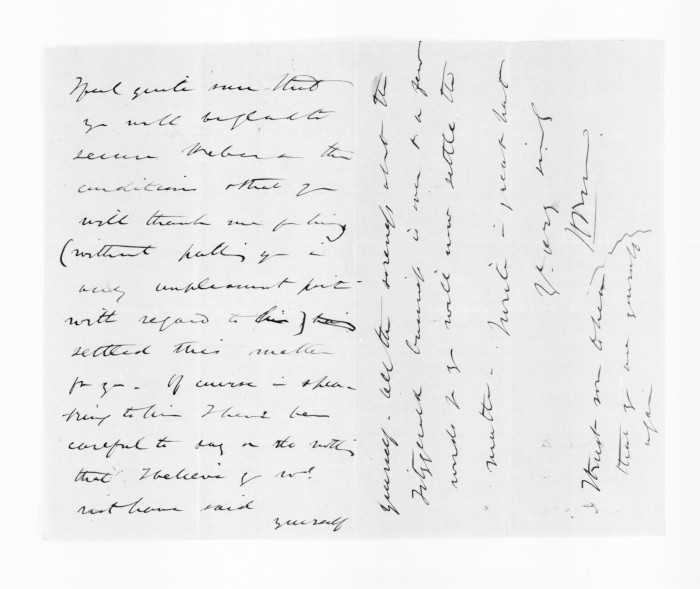 I feel quite sure that
you will be glad to
secure Weber on the
conditions & that you
will thank me for having
(without putting you in
any unpleasant posit-
with regard to him)
settled this matter
for you. Of course in spea-
king to him I have been
careful to say or do nothing
that I believe you wd.
not have said
yourself
yourself. All the soreness about the
Fitzgerald business is over & a few
words from you will now settle the
matter. I write in great haste
Yr. very sincly
I trust soon to hear
that you are yourself
again